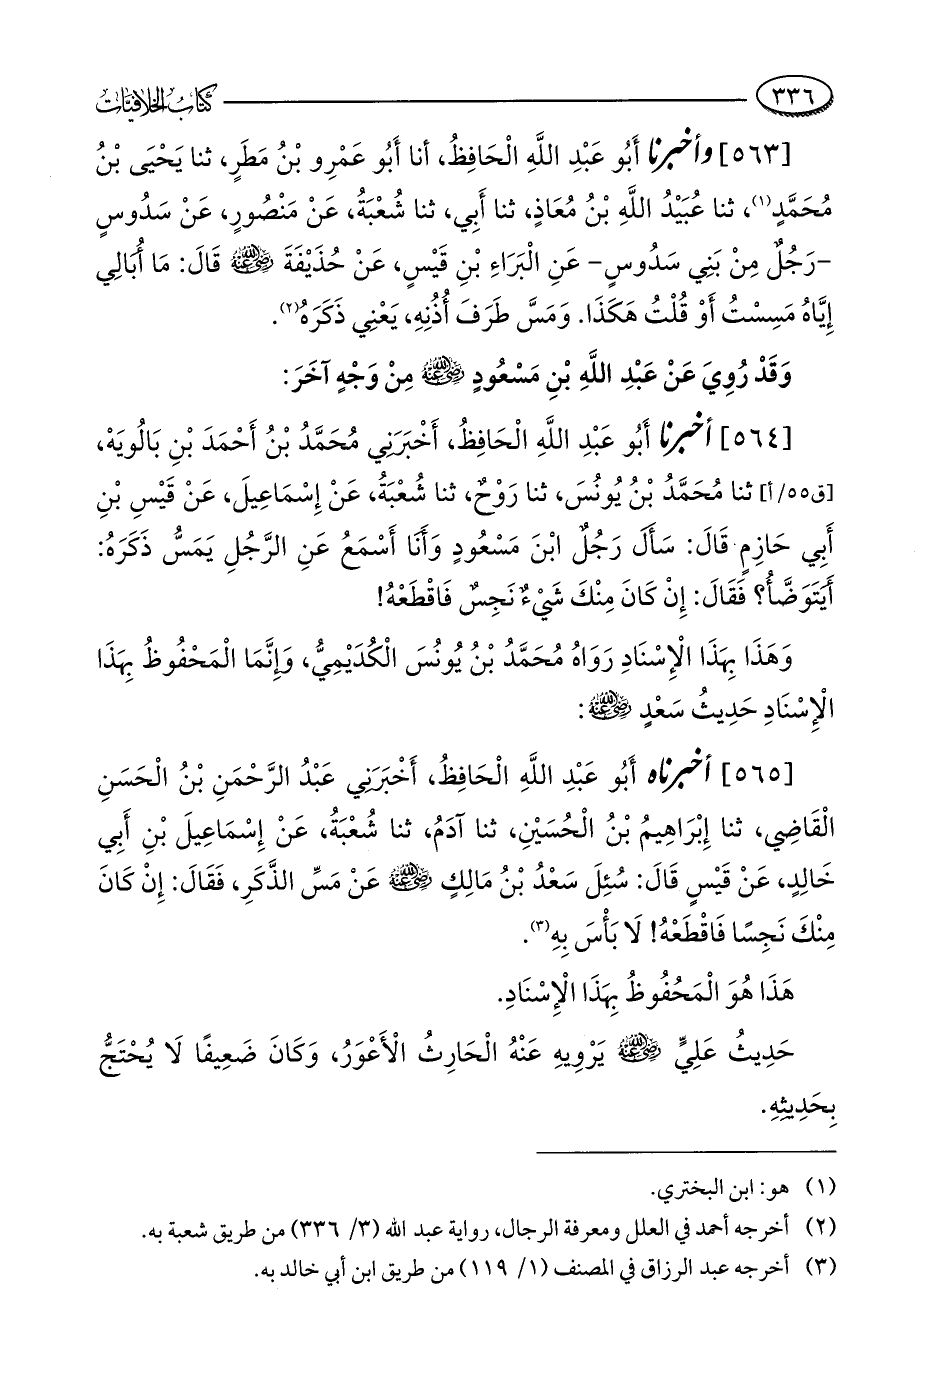 ٣٣٦ كتاب الخلافيات
[٥٦٣] وأخبرنا أَبُو عَبْدِ اللَّهِ الْحَافِظُ، أنا أَبُو عَمْرِو بْنُ مَطَرٍ، ثنا يَحْيَى بْنُ
مُحَمَّدٍ(١)، ثنا عُبَيْدُ اللَّهِ بْنُ مُعَاذٍ، ثنا أَبِي، ثنا شُعْبَةُ، عَنْ مَنْصُورٍ، عَنْ سَدُوسٍ
-رَجُلٌ مِنْ بَنِي سَدُوسٍ- عَنِ الْبَرَاءِ بْنِ قَيْسٍ، عَنْ حُذَيْفَةَ رضي الله عنه قَالَ: مَا أُبَالِي
إِيَّاهُ مَسِسْتُ أَوْ قُلْتُ هَكَذَا. وَمَسَّ طَرَفَ أُذُنِهِ، يَعْنِي ذَكَرَهُ(٢).
وَقَدْ رُوِيَ عَنْ عَبْدِ اللَّهِ بْنِ مَسْعُودٍ رضي الله عنه مِنْ وَجْهٍ آخَرَ:
[٥٦٤] أخبرنا أَبُو عَبْدِ اللَّهِ الْحَافِظُ، أَخْبَرَنِي مُحَمَّدُ بْنُ أَحْمَدَ بْنِ بَالُويَهْ،
[ق٥٥/أ] ثنا مُحَمَّدُ بْنُ يُونُسَ، ثنا رَوْحٌ، ثنا شُعْبَةُ، عَنْ إِسْمَاعِيلَ، عَنْ قَيْسِ بْنِ
أَبِي حَازِمٍ قَالَ: سَأَلَ رَجُلٌ ابْنَ مَسْعُودٍ وَأَنَا أَسْمَعُ عَنِ الرَّجُلِ يَمَسُّ ذَكَرَهُ:
أَيَتَوَضَّأُ؟ فَقَالَ: إِنْ كَانَ مِنْكَ شَيْءٌ نَجِسٌ فَاقْطَعْهُ!
وَهَذَا بِهَذَا الْإِسْنَادِ رَوَاهُ مُحَمَّدُ بْنُ يُونُسَ الْكُدَيْمِيُّ، وَإِنَّمَا الْمَحْفُوظُ بِهَذَا
الْإِسْنَادِ حَدِيثُ سَعْدٍ رضي الله عنه:
[٥٦٥] أخبرناه أَبُو عَبْدِ اللَّهِ الْحَافِظُ، أَخْبَرَنِي عَبْدُ الرَّحْمَنِ بْنُ الْحَسَنِ
الْقَاضِي، ثنا إِبْرَاهِيمُ بْنُ الْحُسَيْنِ، ثنا آدَمُ، ثنا شُعْبَةُ، عَنْ إِسْمَاعِيلَ بْنِ أَبِي
خَالِدٍ، عَنْ قَيْسٍ قَالَ: سُئِلَ سَعْدُ بْنُ مَالِكٍ رضي الله عنه عَنْ مَسِّ الذَّكَرِ، فَقَالَ: إِنْ كَانَ
مِنْكَ نَجِسًا فَاقْطَعْهُ! لَا بَأْسَ بِهِ(٣).
هَذَا هُوَ الْمَحْفُوظُ بِهَذَا الْإِسْنَادِ.
حَدِيثُ عَلِيٍّ رضي الله عنه يَرْوِيهِ عَنْهُ الْحَارِثُ الْأَعْوَرُ، وَكَانَ ضَعِيفًا لَا يُحْتَجُّ
بِحَدِيثِهِ.
(١) هو: ابن البختري.
(٢) أخرجه أحمد في العلل ومعرفة الرجال، رواية عبد الله (٣/ ٣٣٦) من طريق شعبة به.
(٣) أخرجه عبد الرزاق في المصنف (١/ ١١٩) من طريق ابن أبي خالد به.